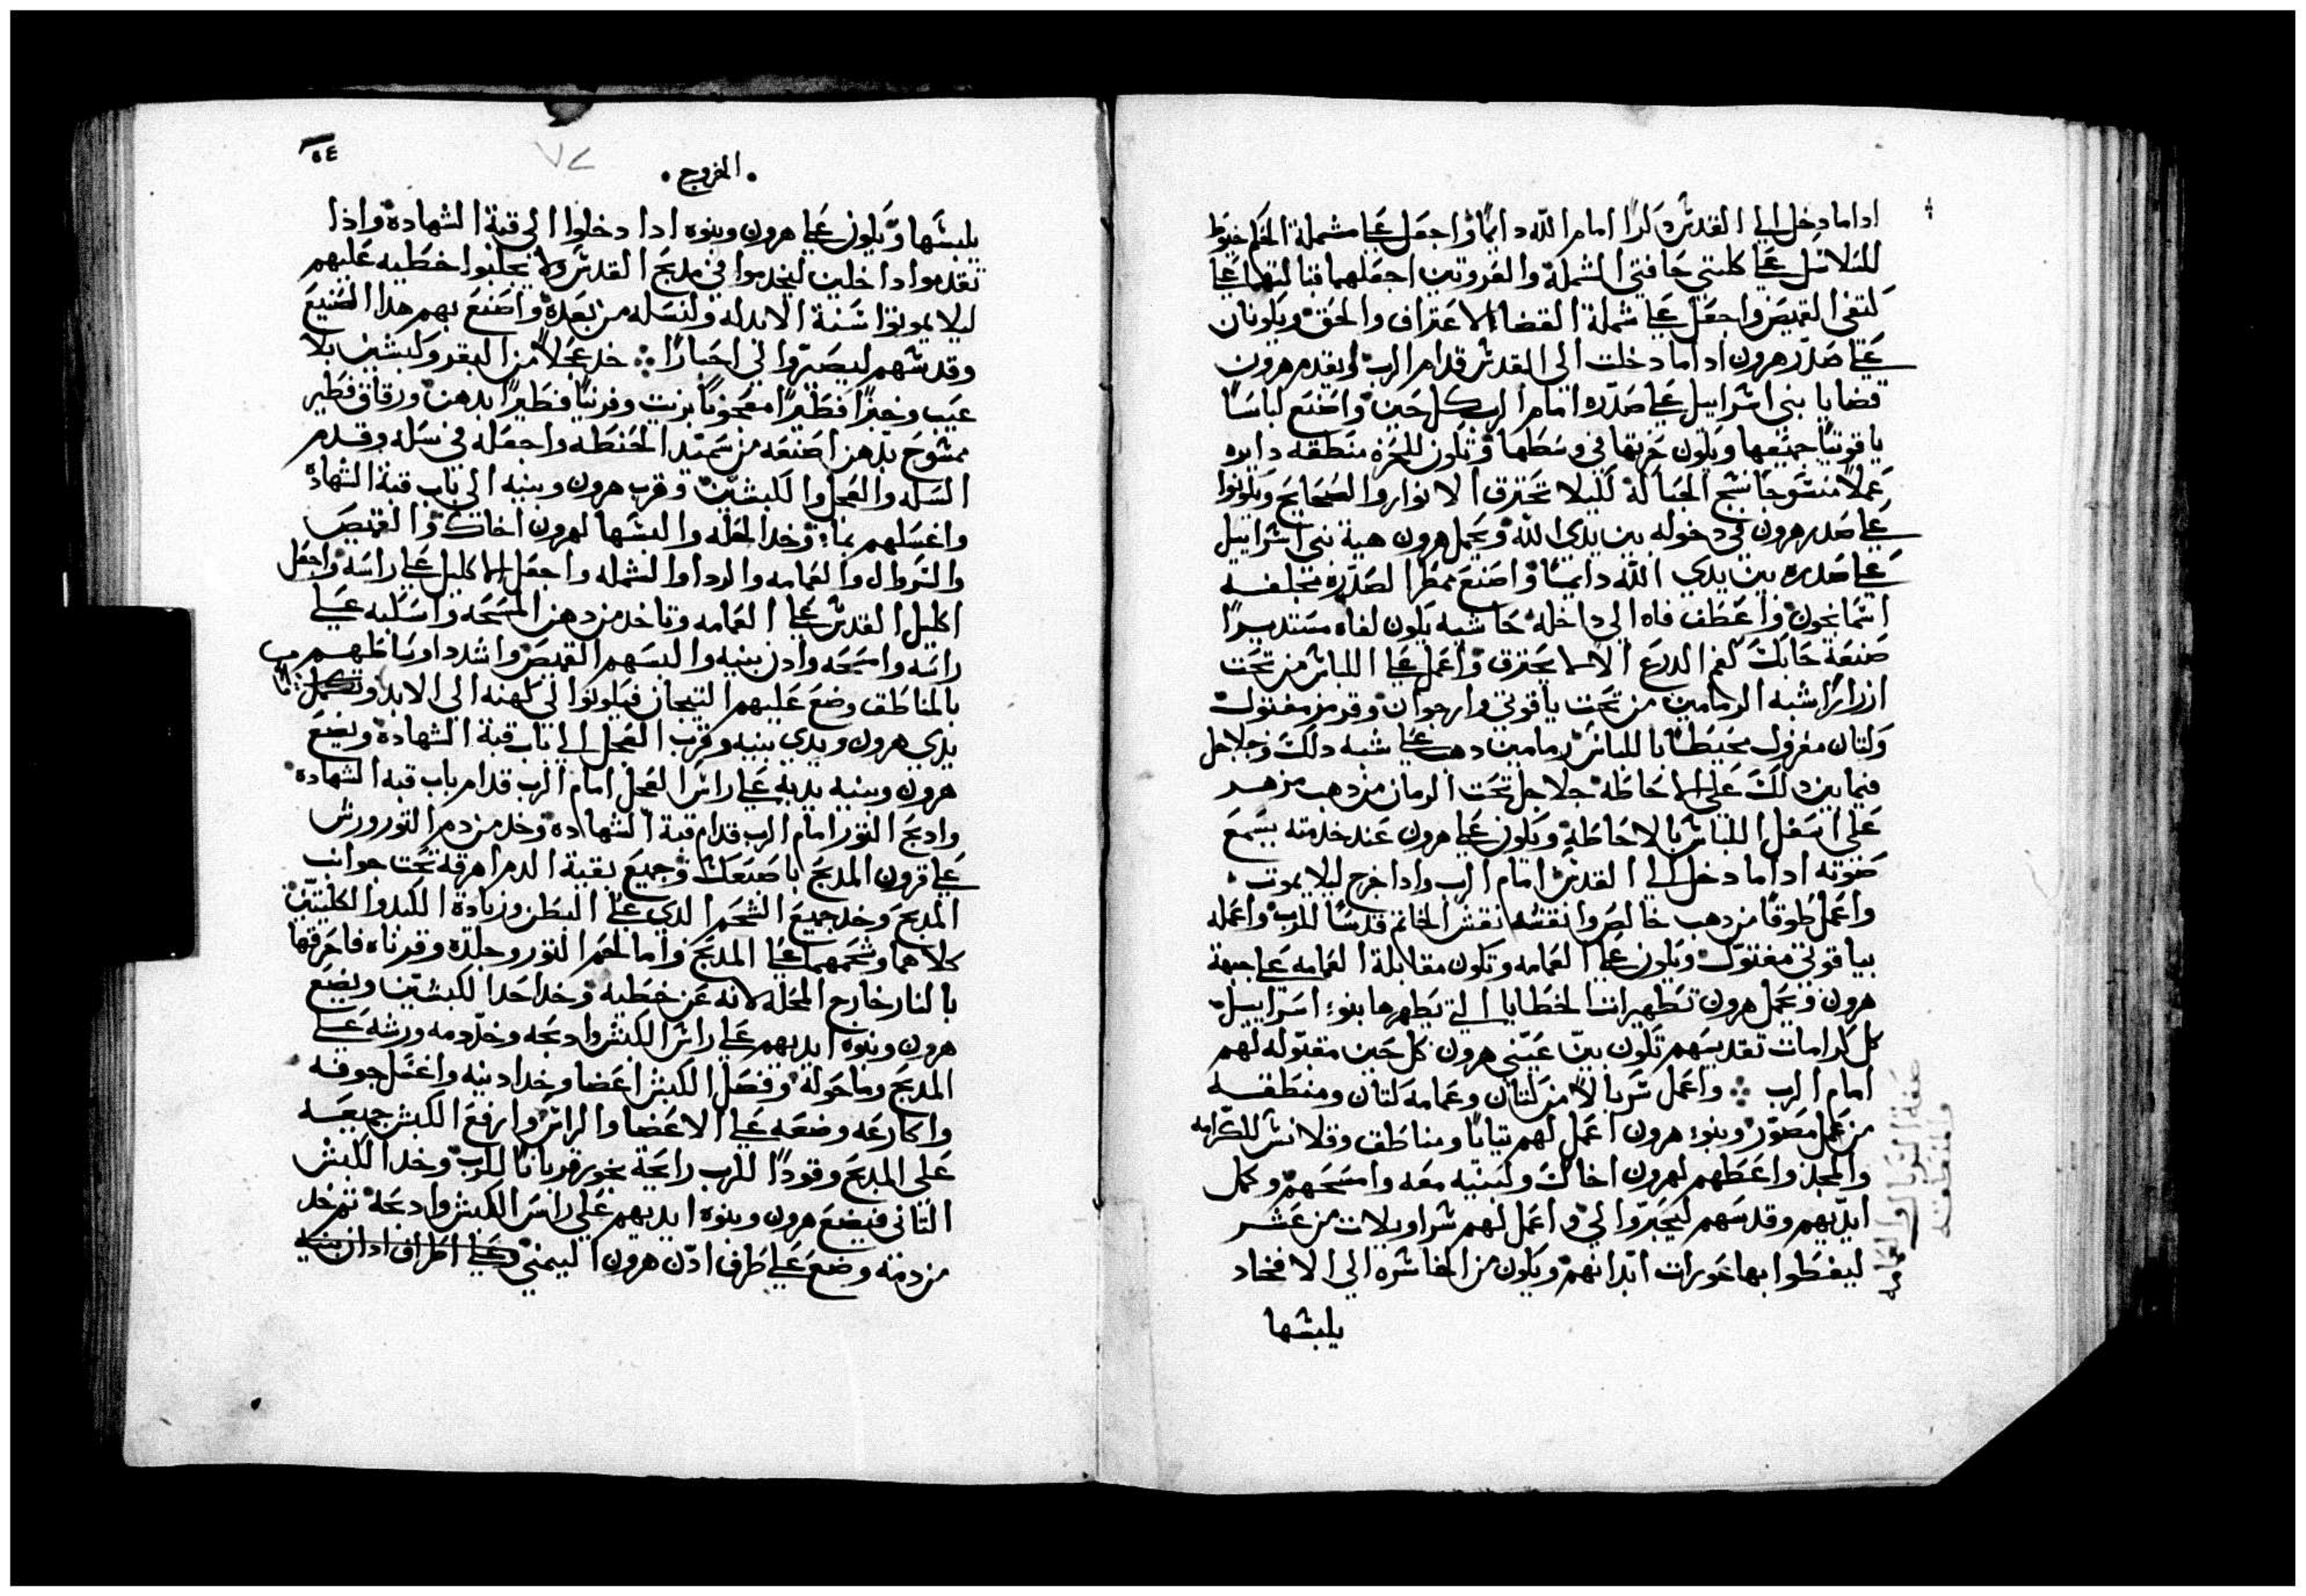 اداما دخل الي القدس دكرا امام الله دايمًا واجعل علي مشملة الحكم خيوط
للسلاسل علي كلتي حافتي الشملة والفروتين اجعلهما قبالتهما علي
كتفي القميص واجعل علي شملة القضا الاعتراف والحق ويكونان
علي صدر هرون اداما دخلت الي القدس قدام الرب ويقدم هرون
قضايا بني اسراييل علي صدره امام الرب كل حين واصنع لباسًا
ياقوتيًا جميعها ويكون خرتها في وسطها وتكون للخرة منطقه دايره
عملًا منسوجًا نسج الحباكة لكيلا تخترق الانوار والصحايح ويكونوا
علي صدر هرون في دخوله بين يدي الله ويحمل هرون هبة بني اسراييل
علي صدره بين يدي الله دايمًا واصنع ممطر الصدرة مخلفه
اسمانجون واعطف فاه الي داخله حاشيه يكون لفاه مستديرًا
صنعة حايك كفم الدرع الا لا يخترق واعمل علي اللباس من تحت
ازرارًا شبه الرمامين من تحت ياقوتي وارجوان وقرمز مفتول
وكتان مغزول مخيطًا باللباس رمامين دهب علي شبه دلك وجلاجل
فيما بين دلك علي الاحاطه جلاجل تحت الرمان من دهب مزهر
علي اسفل اللباس بالاحاطة ويكون علي هرون عند خدمته يسمع
صوته اداما دخل الي القدس امام الرب وادا خرج ليلا يموت
واعمل طوقًا من دهب خالص وانقشه نقش الخاتم قدسًا للرب واعمله
بياقوتي مفتول ويكون علي العمامه وتكون مقابلة العمامه علي جبهة
هرون ويحمل هرون تطهيرات الخطايا التي تطهرها بنو اسراييل
كل كرامات تقديسهم تكون بين عيني هرون كل حين مقبوله لهم
امام الرب واعمل سربالًا من كتان وعمامه كتان ومنطقه
من عمل مصور وبنو هرون اعمل لهم تيابًا ومناطق وقلانس للكرامه
والمجد واعطهم لهرون اخاك ولبنيه معه وامسحهم وكمل
ايديهم وقدسهم ليحبروا لي واعمل لهم سراويلات من عشر
ليغطوا بها عورات ابدانهم ويكون من الخاشره الي الافخاد
يلبسها
صفة السربال والعمامه
والمنطقه
٥٤
٧٢
الخروج
يلبسها ويكون علي هرون وبنوه ادا دخلوا الي قبة الشهادة واذا
تقدموا داخلين ليخدموا في مدبح القدس ولا يجلبوا خطيه عليهم
ليلا يموتوا سنة الابد له ولنسله من بعده واصنع بهم هدا الصنيع
وقدسهم ليصيروا لي احبارًا خد عجلًا من البقر وكبشين بلا
عيب وخبزًا فطيرًا معجونًا بزيت وفرنيًا فطيرًا بدهن ورقاق فطير
ممسوح بدهن اصنعه من سميد الحنطه واجعله في سله وقدم
السله والعجل والكبشين وقرب هرون وبنيه الي باب قبة الشهادة
واغسلهم بماء وخد الحله والبسها لهرون اخاك والقميص
والسروال والعمامه والردا والشمله واجعل الاكليل علي راسه واجعل
اكليل القدس علي العمامه وتاخد من دهن المسحه واسكبه علي
راسه وامسحه وادن بنيه والبسهم القميص واشدد اوساطهم
بالمناطق وضع عليهم التيجان فيكونوا لي كهنه الي الابد وتكمل
يدي هرون ويدي بنيه وقرب العجل الي باب قبة الشهادة ويضع
هرون وبنيه يديه علي راس العجل امام الرب قدام باب قبه الشهادة
وادبح التور امام الرب قدام قبة الشهادة وخد من دم التور ورش
علي قرون المدبح باصبعك وجميع بقية الدم اهرقه تحت جوانب
المدبح وخد جميع الشحم الدي علي البطن وزيادة الكبد والكليتين
كلاهما وشحمهما علي المدبح واما لحم التور وجلده وفرتاه فاحرقها
بالنار خارج المحله لانه عن خطيه وخد احد الكبشين ويضع
هرون وبنوه ايديهم علي راس الكبش وادبحه وخد دمه ورشه علي
المدبح وما حوله وفصل الكبش اعضا وخد ادنيه واغسل جوفه
واكارعه وضعه علي الاعضا والراس وارفع الكبش جميعه
علي المدبح وقودًا للرب رايحة بخور قربانًا للرب وخد الكبش
التاني فيضع هرون وبنوه ايديهم علي راس الكبش وادبحه تم خد
من دمه وضع علي طرف ادن هرون اليمني وعلي اطراف ادان بنيه